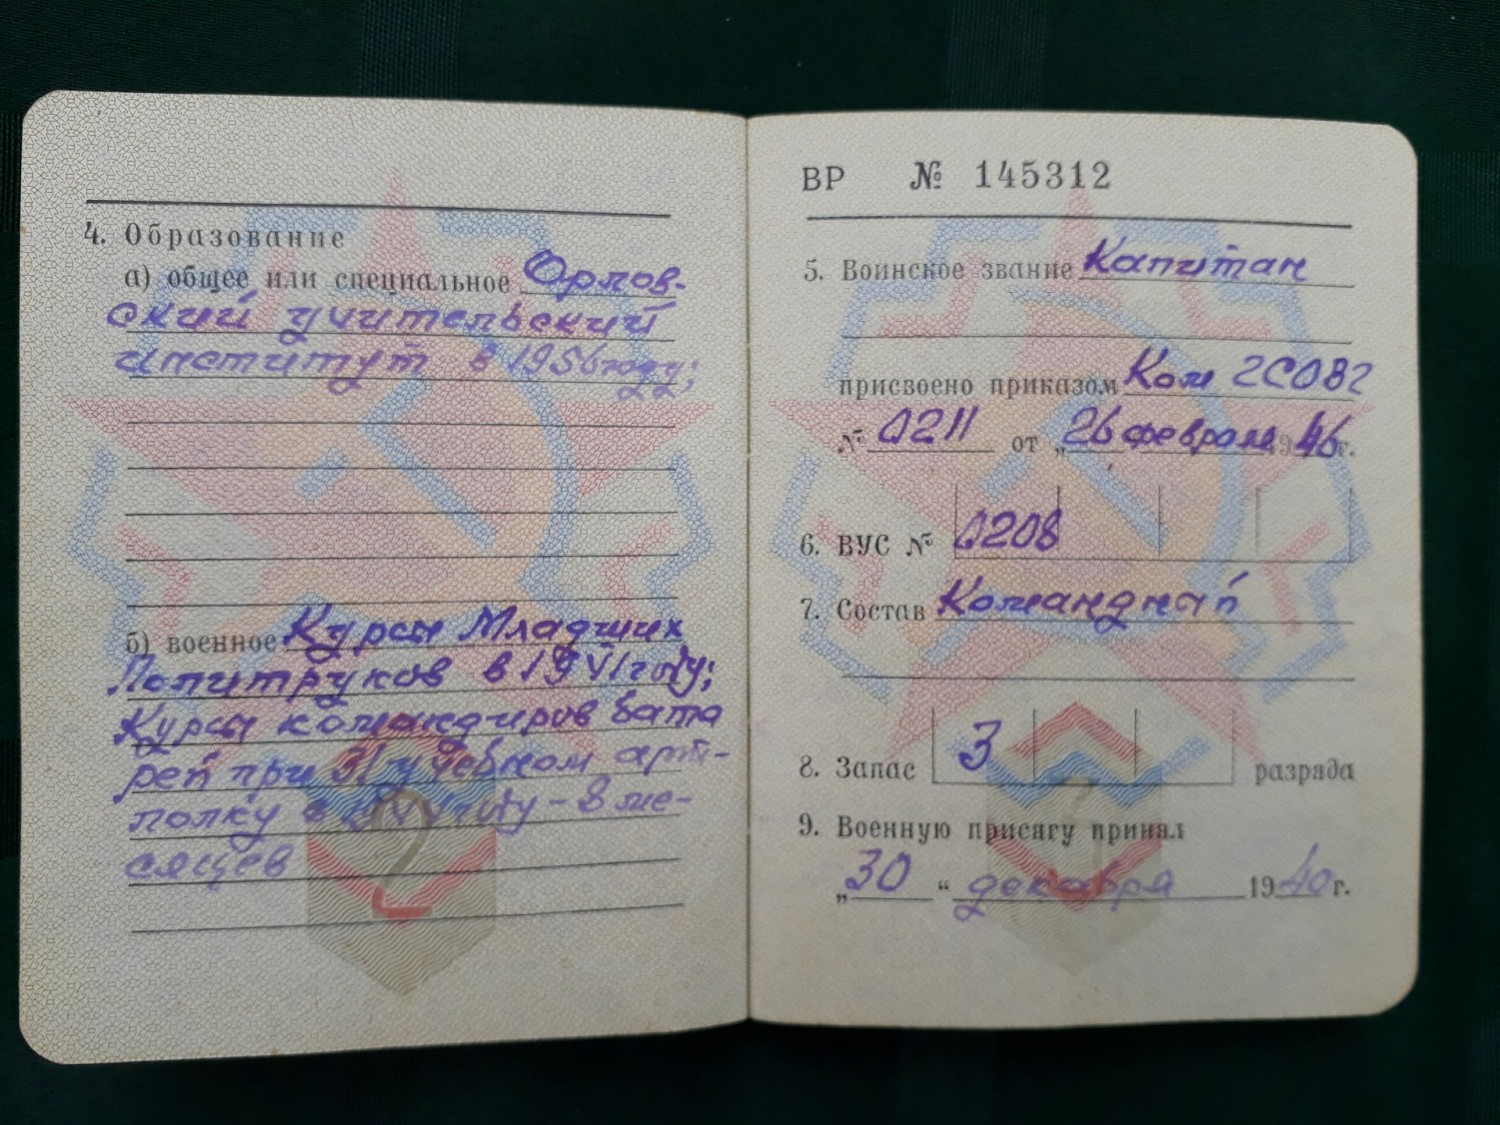 4. Образование
а) общее или специальное Орлов-
ский учительский
институт в 1956 году;
б) военное Курсы Младших
Политруков в 19VI году;
Курсы командиров бата
рей при 31 учебном арт-
полку в году - 8 ме-
сяцев
ВР № 145312
5. Воинское звание Капитан
присвоено приказом Ком 2СОВ2
№ 0211 от „26 февраля 1946 г.
6. ВУС № 0208
7. Состав Командный
8. Запас 3 разряда
9. Военную присягу принял
„30" декабря 1940 г.